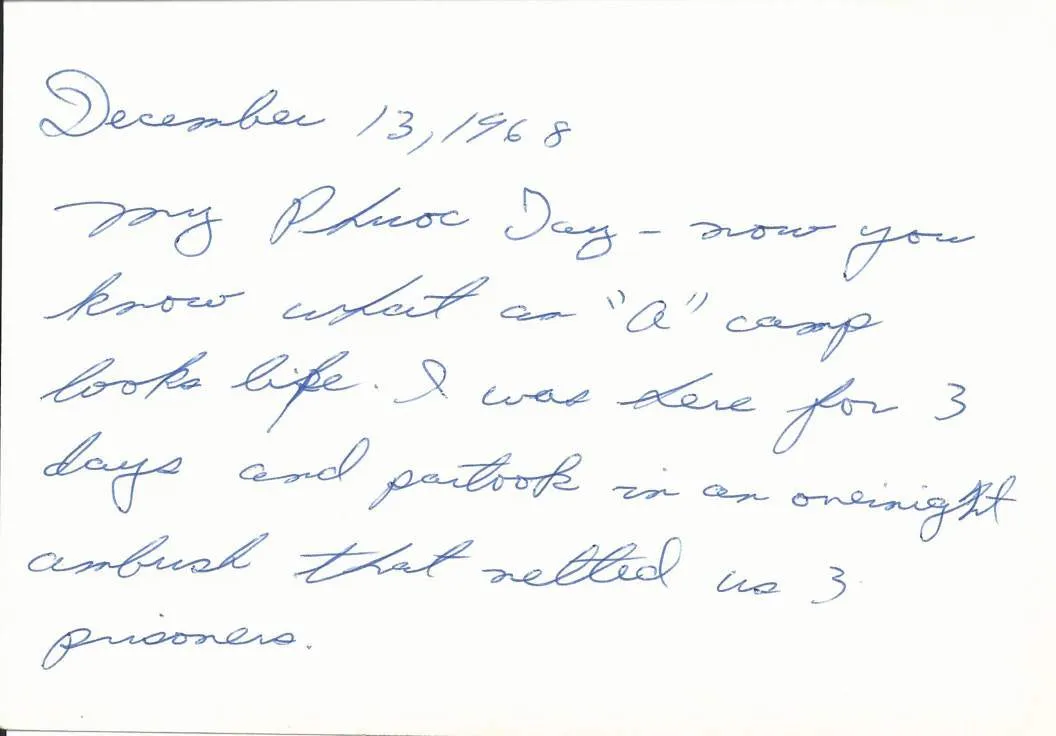 December 13, 1968
My Phuoc Tay - now you
know what an "A" camp
looks like. I was here for 3
days and partook in an overnight
ambush that netted us 3
prisoners.